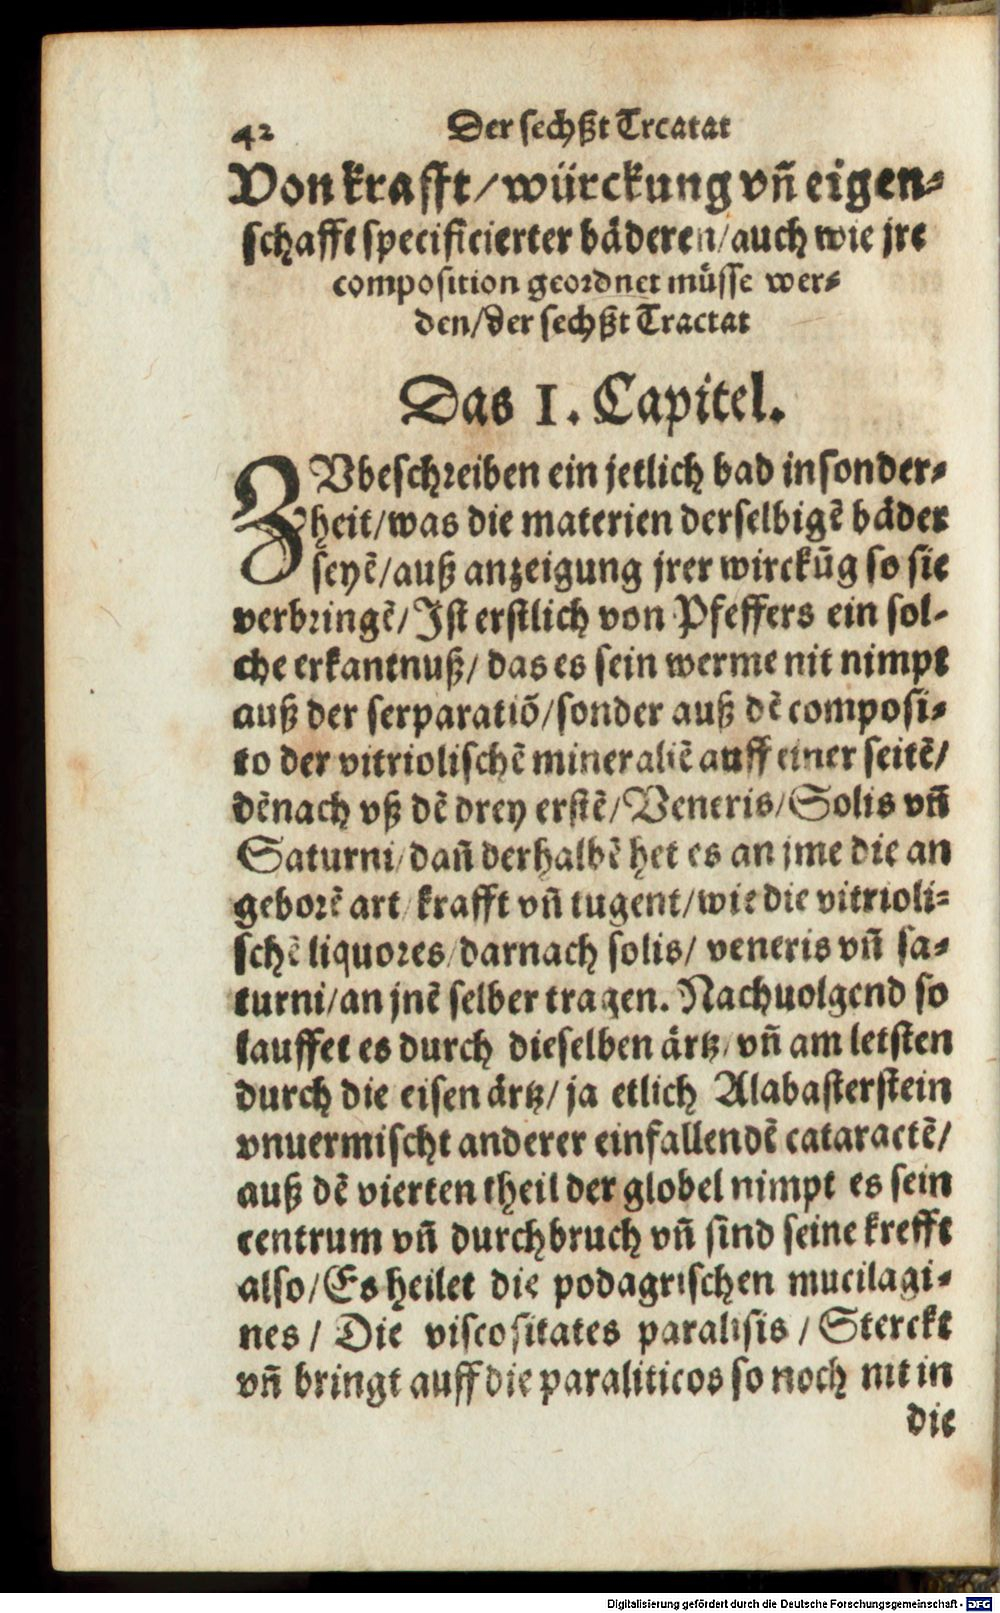 42 Der sechßt Trcatat
Von krafft/würckung vñ eigen⸗
schafft specificierter bäderen/auch wie jre
composition geordnet müsse wer⸗
den/der sechßt Tractat
Das I. Capitel.
ZVbeschreiben ein jetlich bad in sonder⸗
heit/was die materien derselbigẽ bäder
seyẽ/auß anzeigung jrer wirckũg so sie
verbringẽ/Ist erstlich von Pfeffers ein sol⸗
che erkantnuß/das es sein werme nit nimpt
auß der serparatiõ/sonder auß dẽ composi⸗
to der vitriolischẽ mineraliẽ auff einer seitẽ/
dẽnach vß dẽ drey erstẽ/Veneris/Solis vñ
Saturni/dañ derhalbẽ het es an jme die an
geborẽ art/krafft vñ tugent/wie die vitrioli⸗
schẽ liquores/darnach solis/veneris vñ sa⸗
turni/an jnẽ selber tragen. Nachuolgend so
lauffet es durch dieselben ärtz/vñ am letsten
durch die eisen ärtz/ja etlich Alabasterstein
vnuermischt anderer einfallendẽ cataractẽ/
auß dẽ vierten theil der globel nimpt es sein
centrum vñ durchbruch vñ sind seine krefft
also/Es heilet die podagrischen mucilagi⸗
nes/Die viscositates paralisis/Sterckt
vñ bringt auff die paraliticos so noch nit in
die
Digitalisierung gefördert durch die Deutsche Forschungsgemeinschaft - DFG